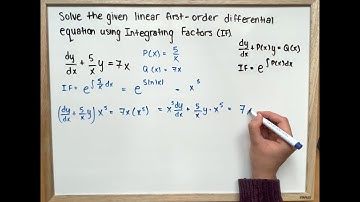 Solve the given linear first-order differential
equation using Integrating Factors (IF).
dy/dx + 5/x y = 7x
P(x) = 5/x
Q(x) = 7x
dy/dx + P(x)y = Q(x)
IF = e^∫P(x)dx
IF = e^∫5/x dx = e^5ln|x| = x^5
(dy/dx + 5/x y) x^5 = 7x(x^5) = x^5 dy/dx + 5/x y · x^5 = 7x